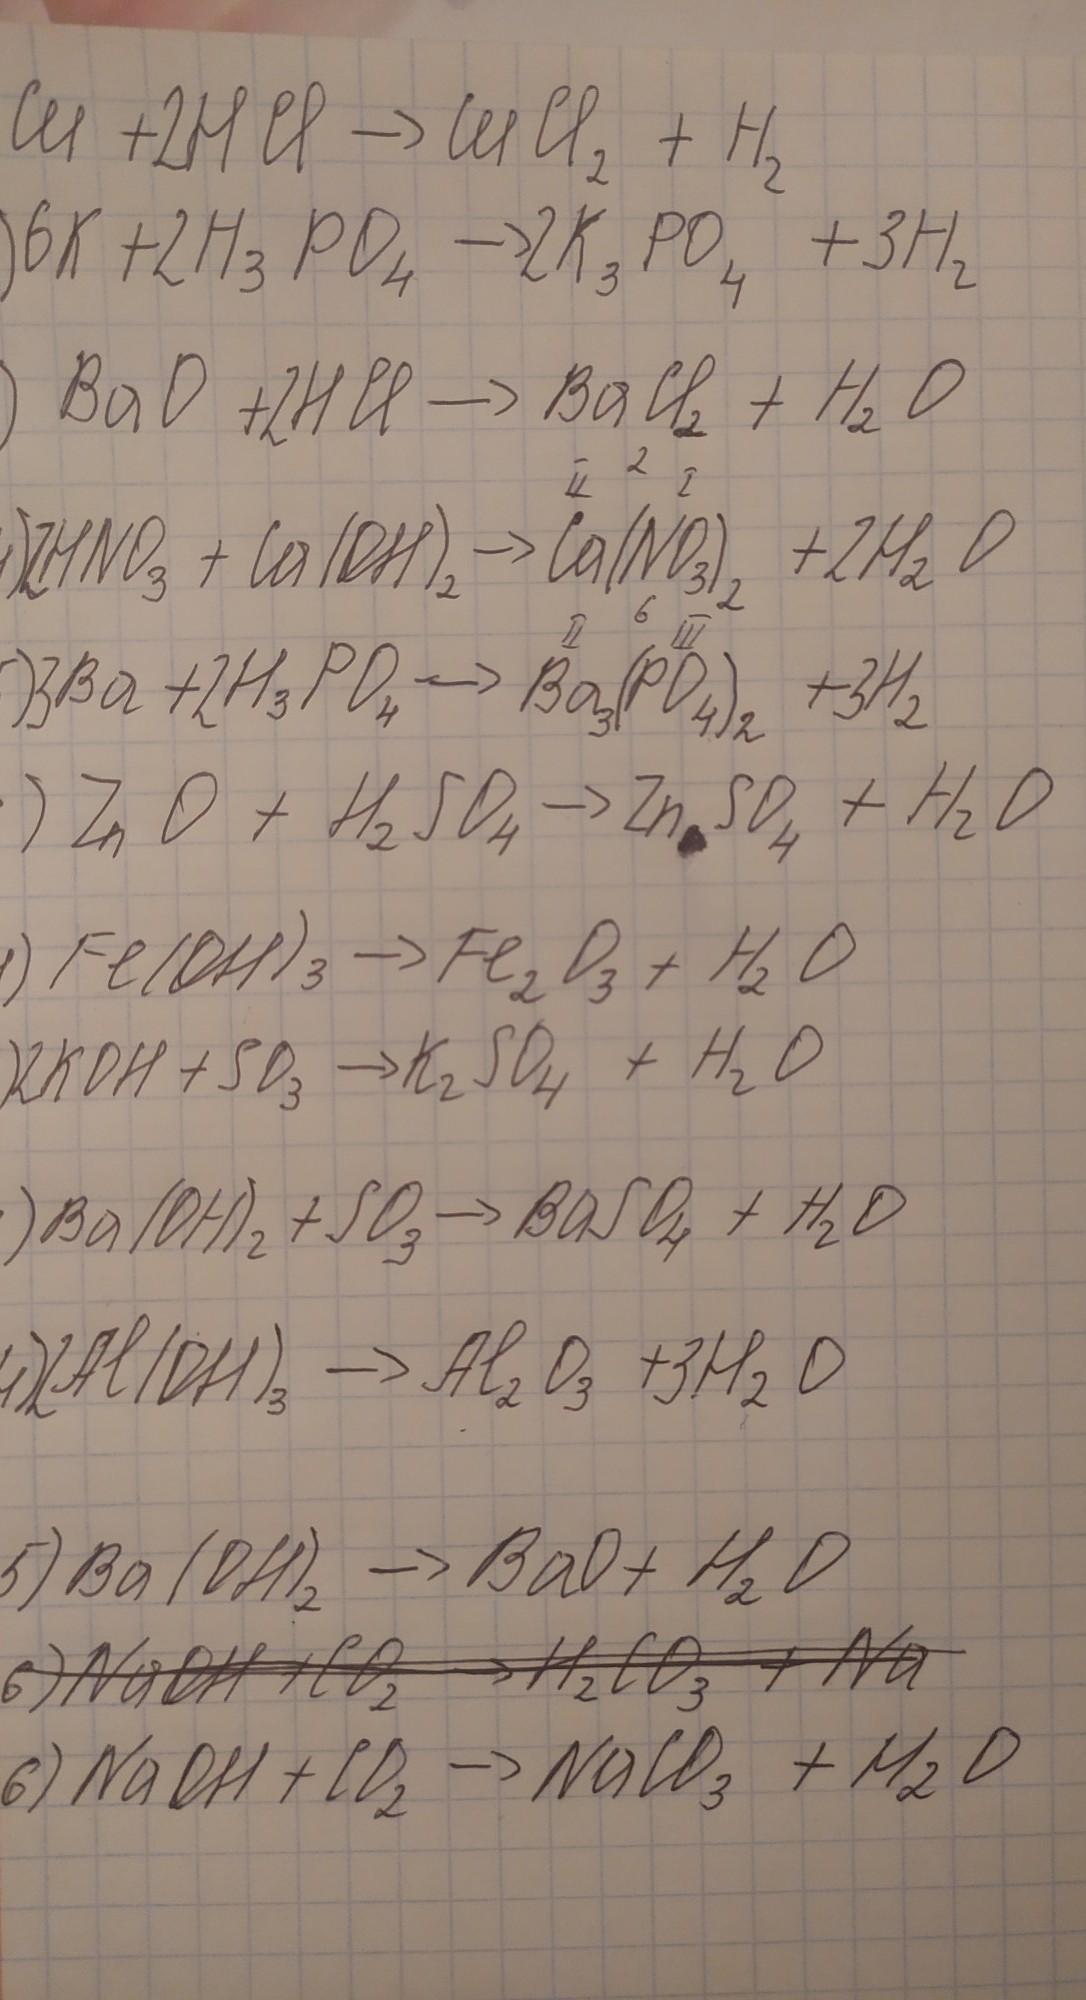 Cu +2HCl → CuCl₂ + H₂
)6K +2H₃PO₄ → 2K₃PO₄ +3H₂
) BaO +2HCl → BaCl₂ + H₂O
II 2 I
4)2HNO₃ + Ca(OH)₂ → Ca(NO₃)₂ +2H₂O
II 6 III
5)3Ba +2H₃PO₄ → Ba₃(PO₄)₂ +3H₂
) ZnO + H₂SO₄ → ZnSO₄ + H₂O
1) Fe(OH)₃ → Fe₂O₃ + H₂O
)2KOH + SO₃ → K₂SO₄ + H₂O
) Ba(OH)₂ + SO₃ → BaSO₄ + H₂O
4)2Al(OH)₃ → Al₂O₃ +3H₂O
5) Ba(OH)₂ → BaO + H₂O
6) NaOH + CO₂ → H₂CO₃ + Na
6) NaOH + CO₂ → NaCO₃ + H₂O